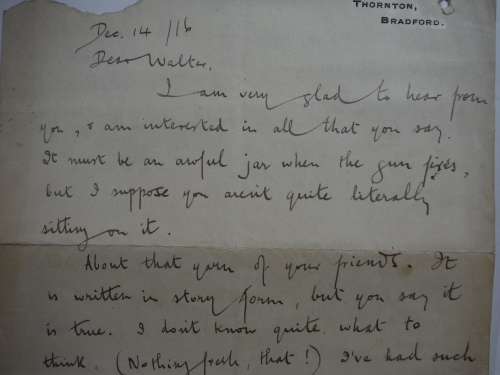 THORNTON,
BRADFORD.
Dec. 14 /16
Dear Walter,
I am very glad to hear from
you, & am interested in all that you say.
It must be an awful jar when the gun fires,
but I suppose you aren't quite literally
sitting on it.
About that yarn of your friend's. It
is written in story form, but you say it
is true. I don't know quite what to
think. (Nothing fresh, that!) I've had such